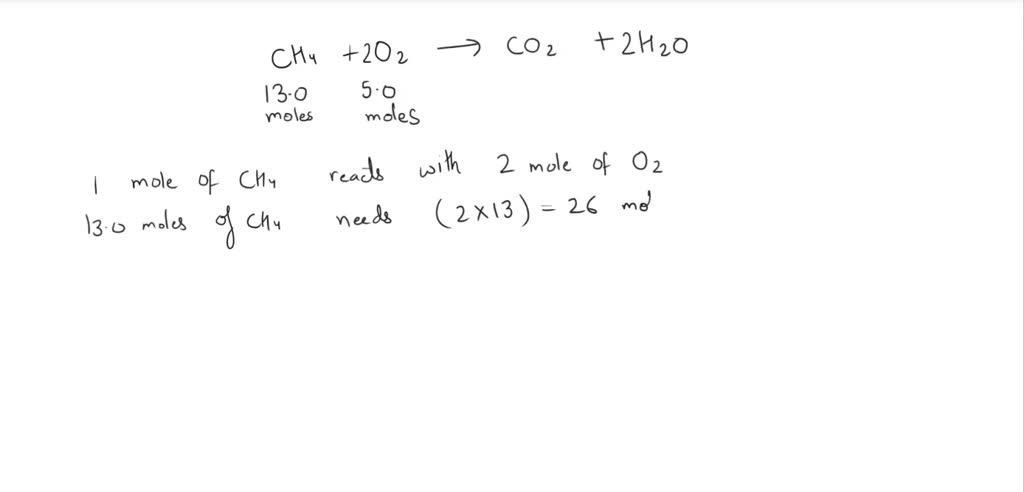 CH4 +2O2 → CO2 +2H2O
13.0 5.0
moles moles
1 mole of CH4 reacts with 2 mole of O2
13.0 moles of CH4 needs (2×13) = 26 mol